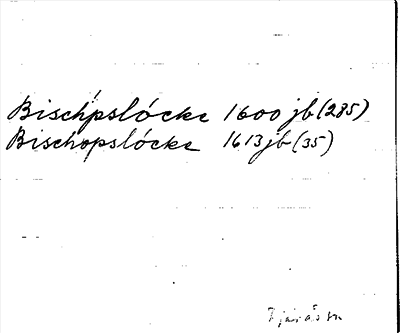 Bischpslócke 1600 jb (285)
Bischopslócke 1613 jb (35)